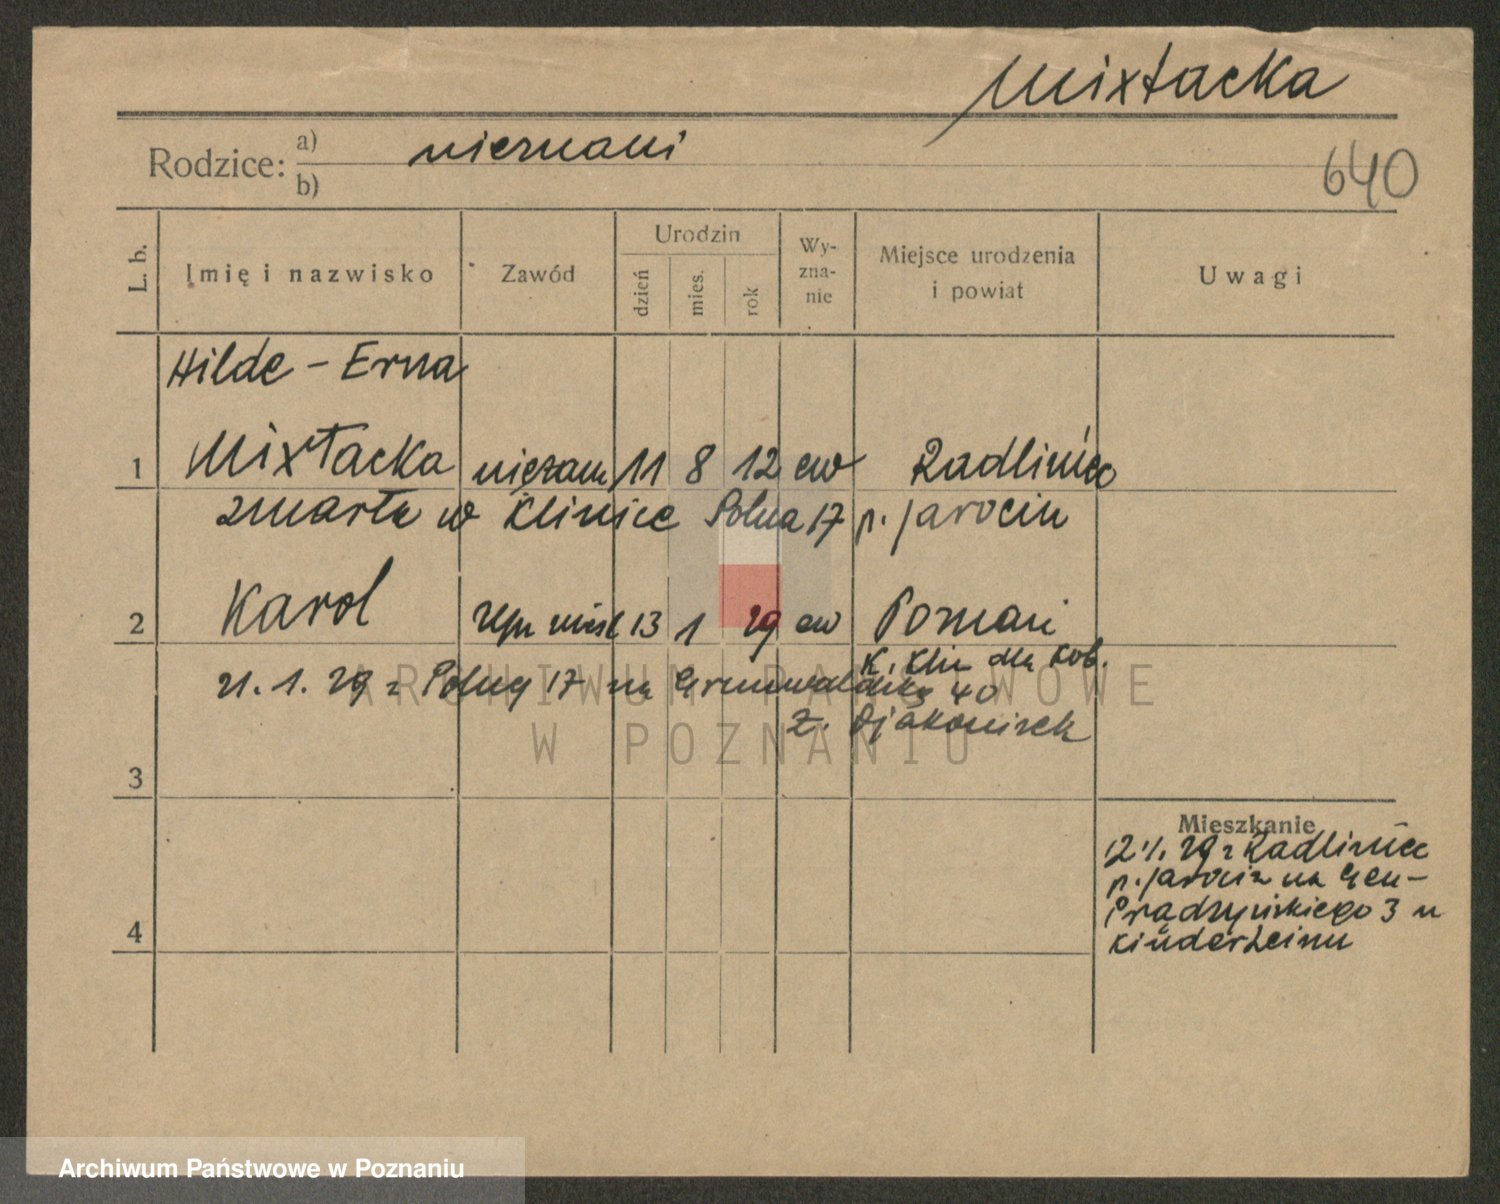 Mixtacka
Rodzice: a) nieznani
b)
640
L. b.
Imię i nazwisko
Zawód
Urodzin
dzień
mies.
rok
Wy-
zna-
nie
Miejsce urodzenia
i powiat
Uwagi
Hilde - Erna
1 Mixtacka niezam 11 8 12 ew Radliniec
zmarła w Klinice Polna 17 p. Jarocin
2 Karol 13 1 29 ew Poznań
K. Klin dla Kob.
21.1.29 z Polnej 17 na Grunwaldzką 40
z. Djakonisek
3
Mieszkanie
12 1. 29 z Radliniec
p. Jarocin na Gen-
Prądzyńskiego 3 u
Kinderheimu
4
ARCHIWUM PAŃSTWOWE
W POZNANIU
Archiwum Państwowe w Poznaniu